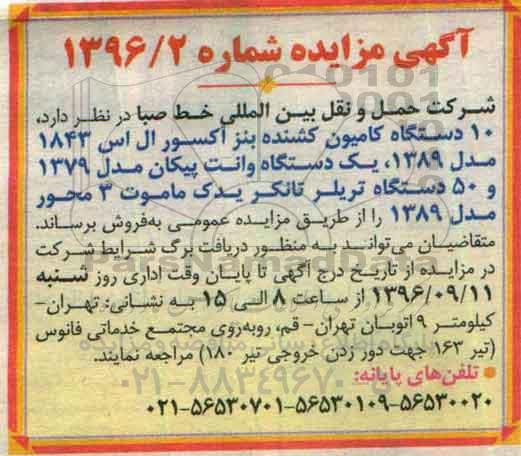 آگهی مزایده شماره ۱۳۹۶/۲
شرکت حمل و نقل بین المللی خط صبا در نظر دارد،
۱۰ دستگاه کامیون کشنده بنز آکسور ال اس ۱۸۴۳
مدل ۱۳۸۹، یک دستگاه وانت پیکان مدل ۱۳۷۹
و ۵۰ دستگاه تریلر تانکر یدک ماموت ۳ محور
مدل ۱۳۸۹ را از طریق مزایده عمومی به‌فروش برساند.
متقاضیان می‌توانند به منظور دریافت برگ شرایط شرکت
در مزایده از تاریخ درج آگهی تا پایان وقت اداری روز شنبه
۱۳۹۶/۰۹/۱۱ از ساعت ۸ الی ۱۵ به نشانی: تهران-
کیلومتر ۹ اتوبان تهران- قم، روبه‌روی مجتمع خدماتی فانوس
(تیر ۱۶۳ جهت دور زدن خروجی تیر ۱۸۰) مراجعه نمایند.
تلفن‌های پایانه:
۰۲۱-۵۶۵۳۰۷۰۱-۵۶۵۳۰۱۰۹-۵۶۵۳۰۰۲۰
ParsNamadData
۰۲۱-۸۸۳۴۹۶۷۰